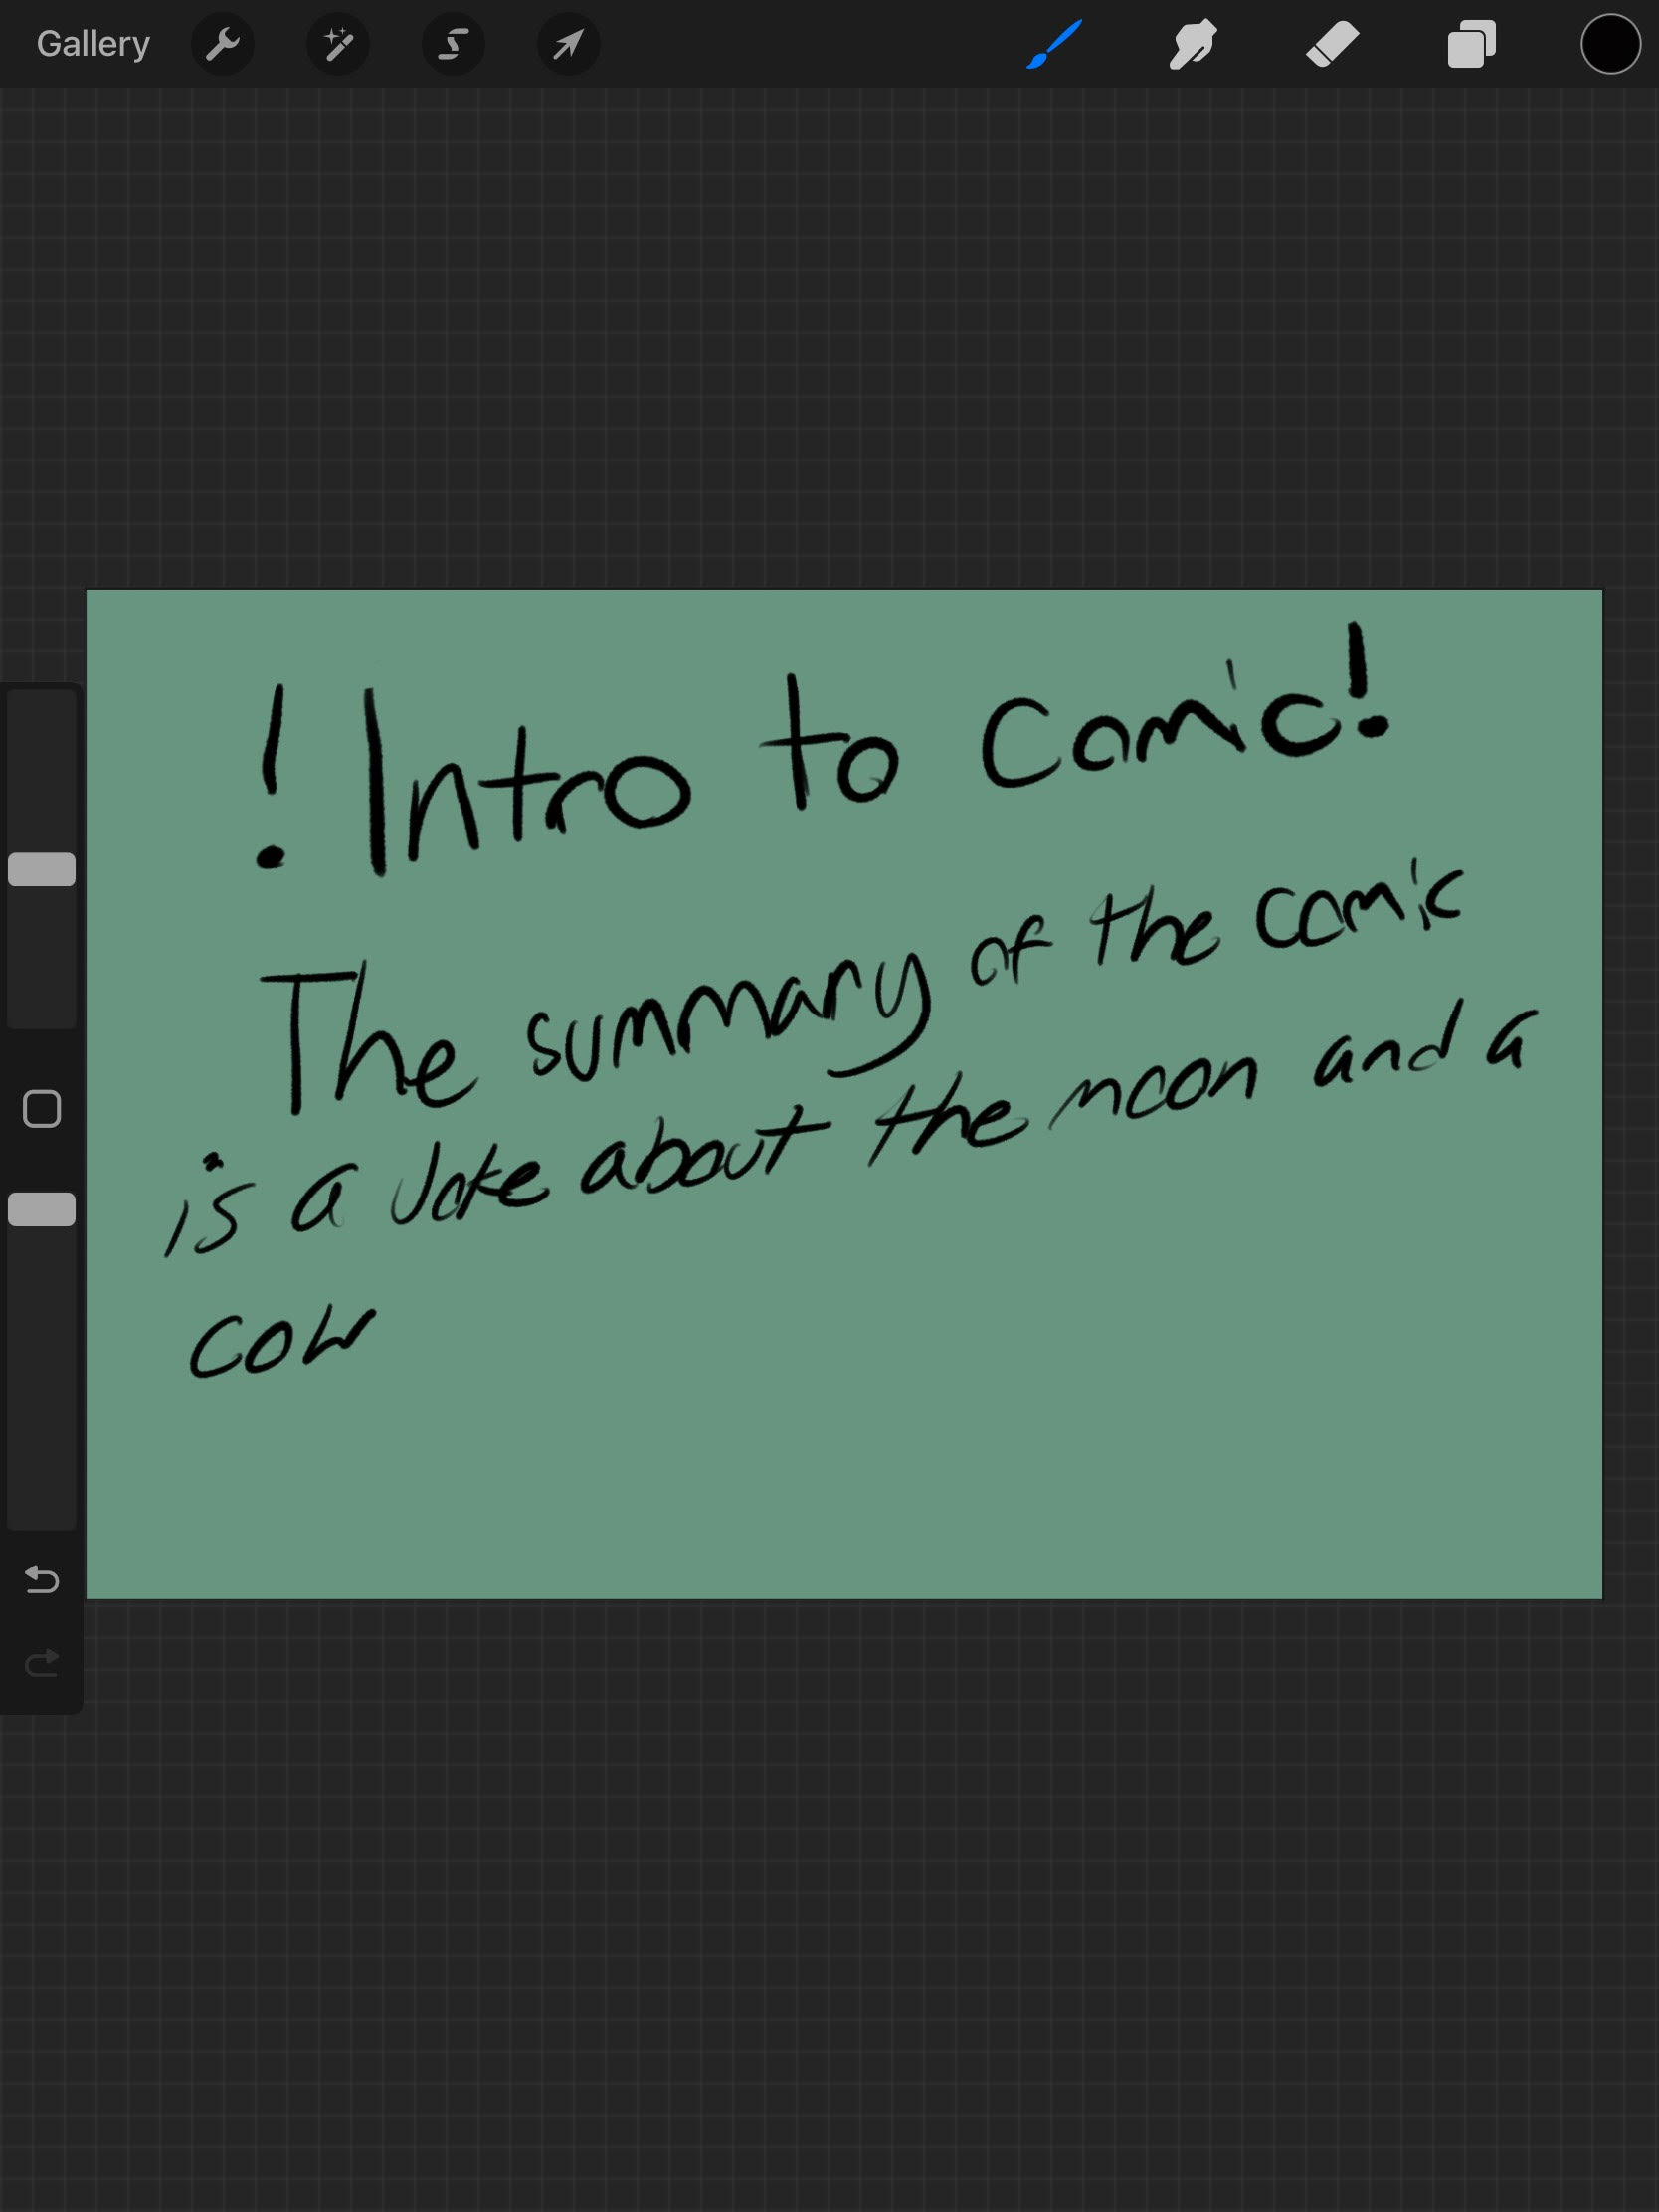 Gallery
! Intro to Comic!
The summary of the comic
is a Joke about the moon and a
cow